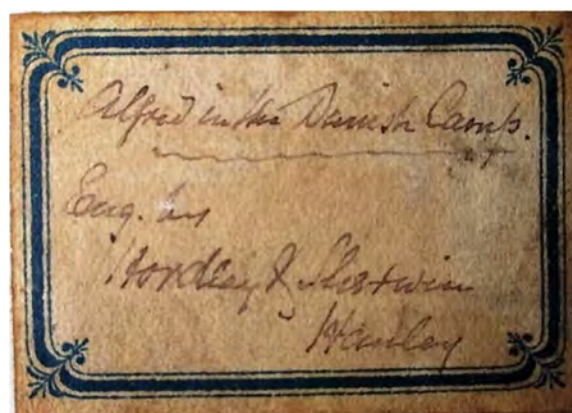 Alfred in the Danish Camp.
Eng. by
Hordley & Sherwin
Hanley